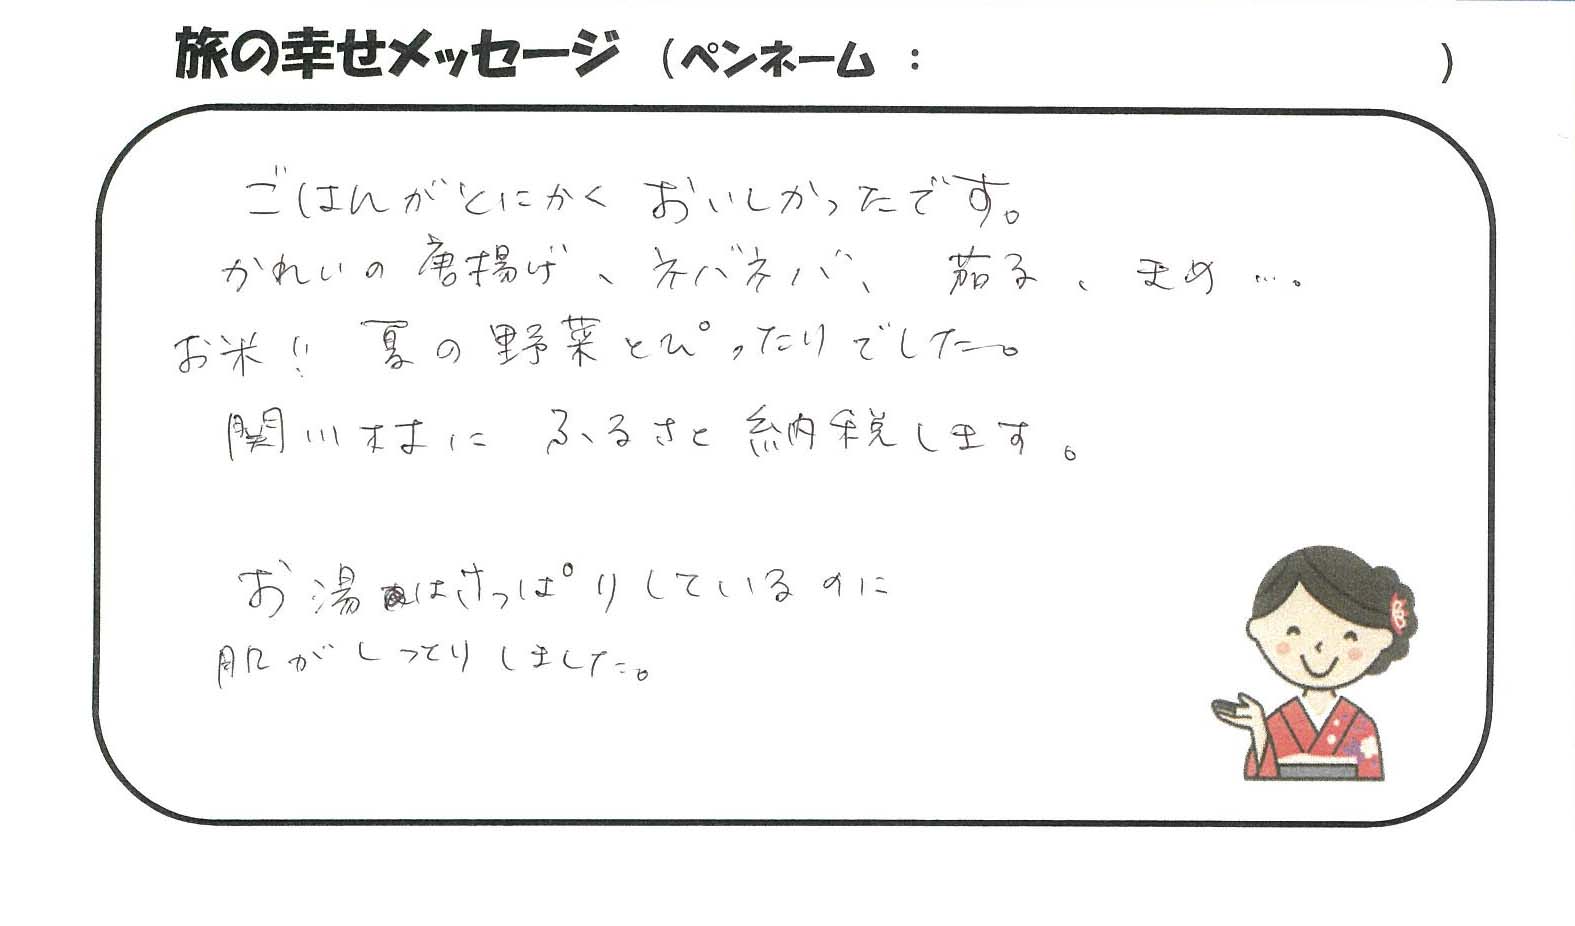 旅の幸せメッセージ (ペンネーム : )
ごはんがとにかく おいしかったです。
かれいの唐揚げ、ネバネバ、茄子、まめ…。
お米!! 夏の野菜とぴったりでした。
関川村に ふるさと納税します。
お湯はさっぱりしているのに
肌がしっとりしました。